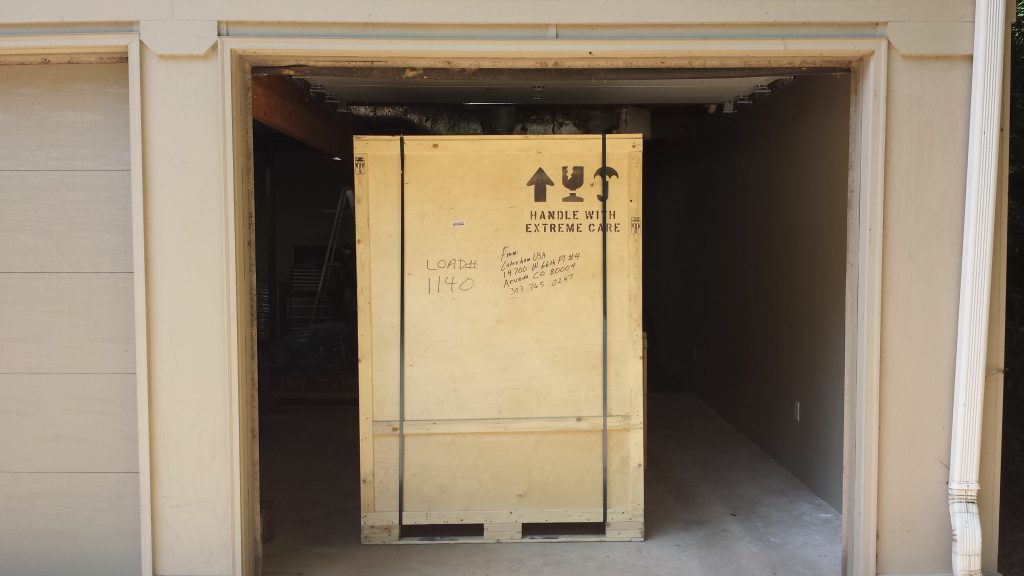 HANDLE WITH
EXTREME CARE
LOAD#
1140
From:
Caterham USA
14700 W 66th Pl #4
Arvada CO 80004
303 765 0247